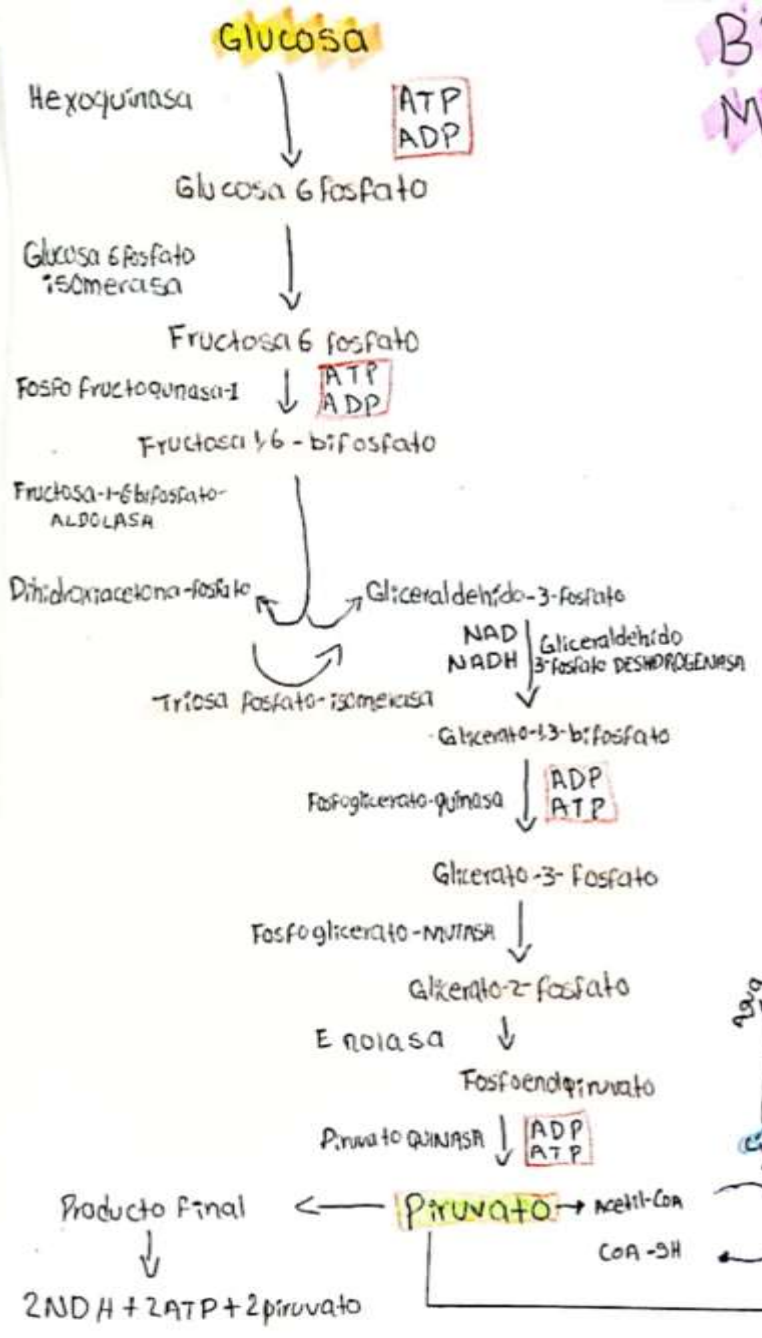 Glucosa
B
M
Hexoquinasa
ATP
ADP
Glucosa 6 fosfato
Glucosa 6 fosfato
isomerasa
Fructosa 6 fosfato
Fosfo fructoqunasa-1
ATP
ADP
Fructosa 1,6-bifosfato
Fructosa-1-6bifosfato-
ALDOLASA
Dihidroxiacetona-fosfato
Gliceraldehído-3-fosfato
NAD
NADH
Gliceraldehído
3-fosfato DESHDROGENASA
Triosa fosfato-isomerasa
Glicerato-1,3-bifosfato
Fosfoglicerato-quinasa
ADP
ATP
Glicerato-3-Fosfato
Fosfoglicerato-MUTASA
Glicerato-2-fosfato
Enolasa
Fosfoendopiruvato
Piruvato QUINASA
ADP
ATP
Producto Final
Piruvato
Acetil-CoA
CoA-SH
2NDH+2ATP+2piruvato